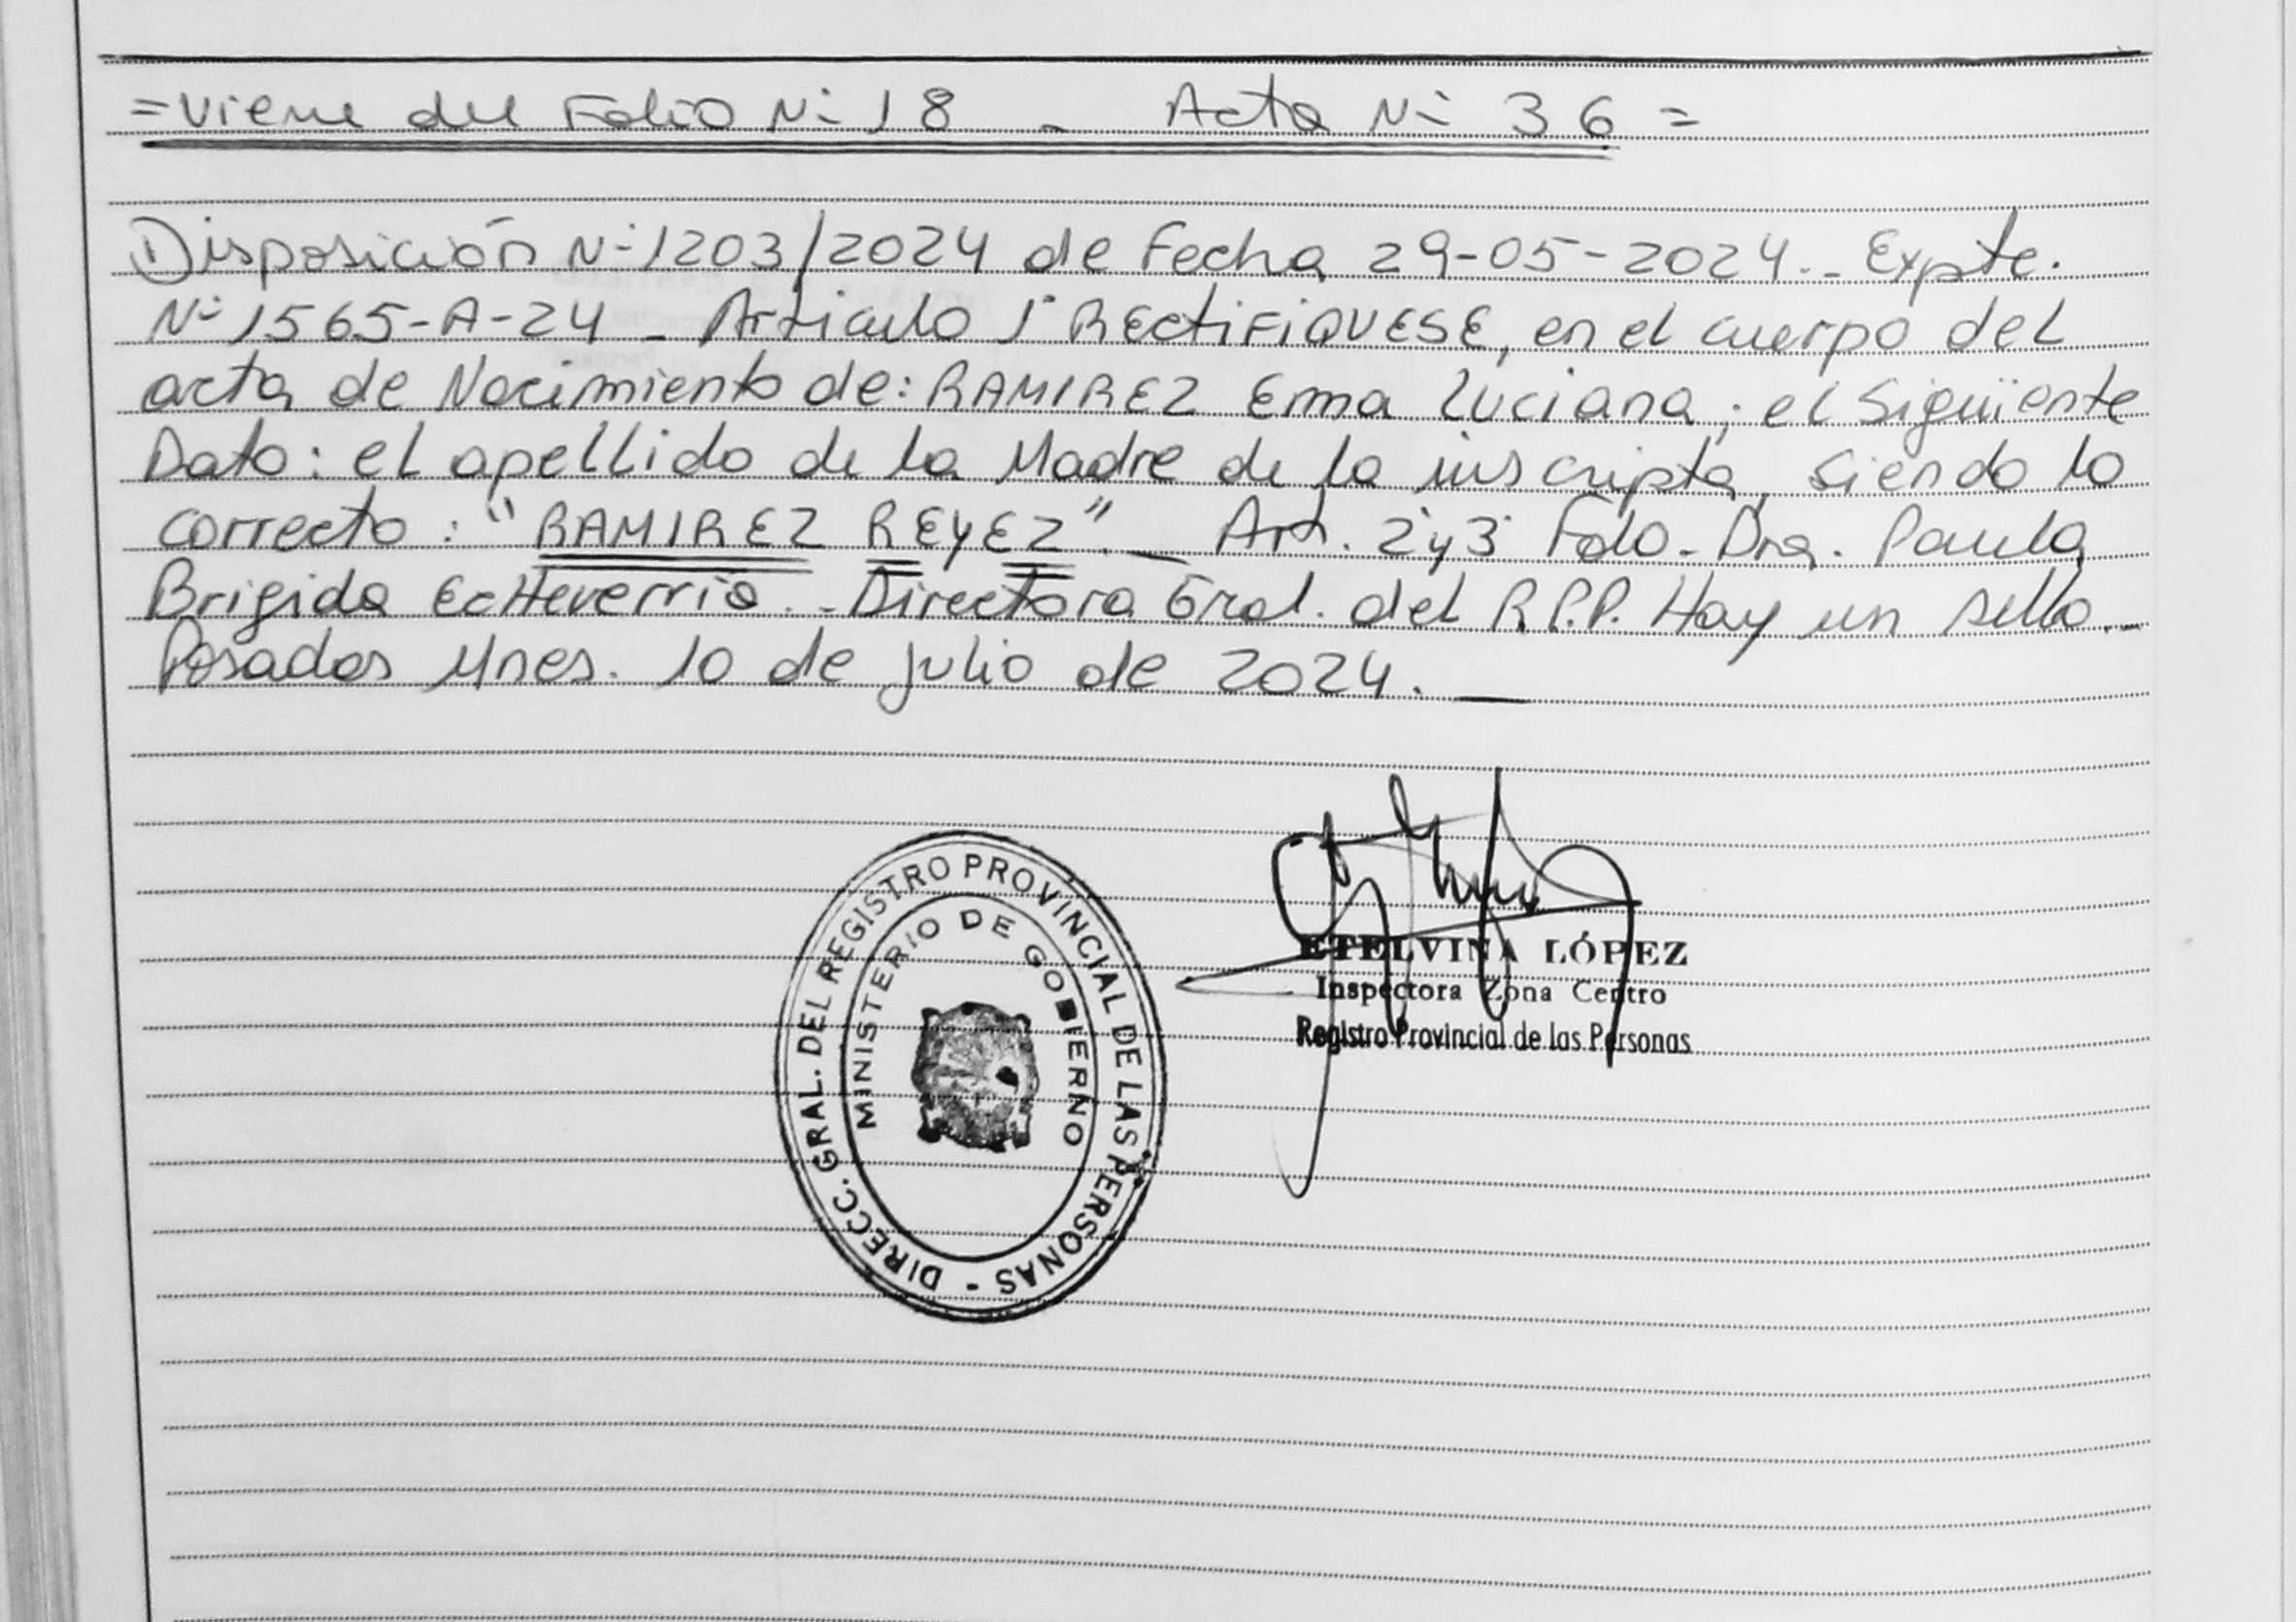 =Viene del Folio N° 18 - Acta N° 36 =
Disposición N° 1203/2024 de Fecha 29-05-2024.- Expte.
N° 1565-A-24 - Articulo 1° RECtiFiQUESE, en el cuerpo del
acta de Nacimiento de: RAMIREZ Emma Luciana; el Sigüiente
Dato: el apellido de la Madre de la inscripta, Siendo lo
correcto: "RAMIREZ REYEZ".- Art. 2°y3° Fdo-Dra. Paula
Brigida EcHeverria.-Directora Gral. del R.P.P. Hay un sello.-
Posadas Mnes. 10 de julio de 2024.-
DIRECC. GRAL. DEL REGISTRO PROVINCIAL DE LAS PERSONAS -
MINISTERIO DE GOBIERNO
ETELVINA LÓPEZ
Inspectora Zona Centro
Registro Provincial de las Personas